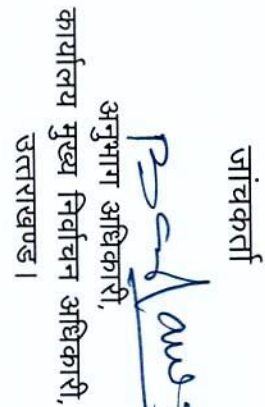 जांचकर्ता
अनुभाग अधिकारी,
कार्यालय मुख्य निर्वाचन अधिकारी,
उत्तराखण्ड।